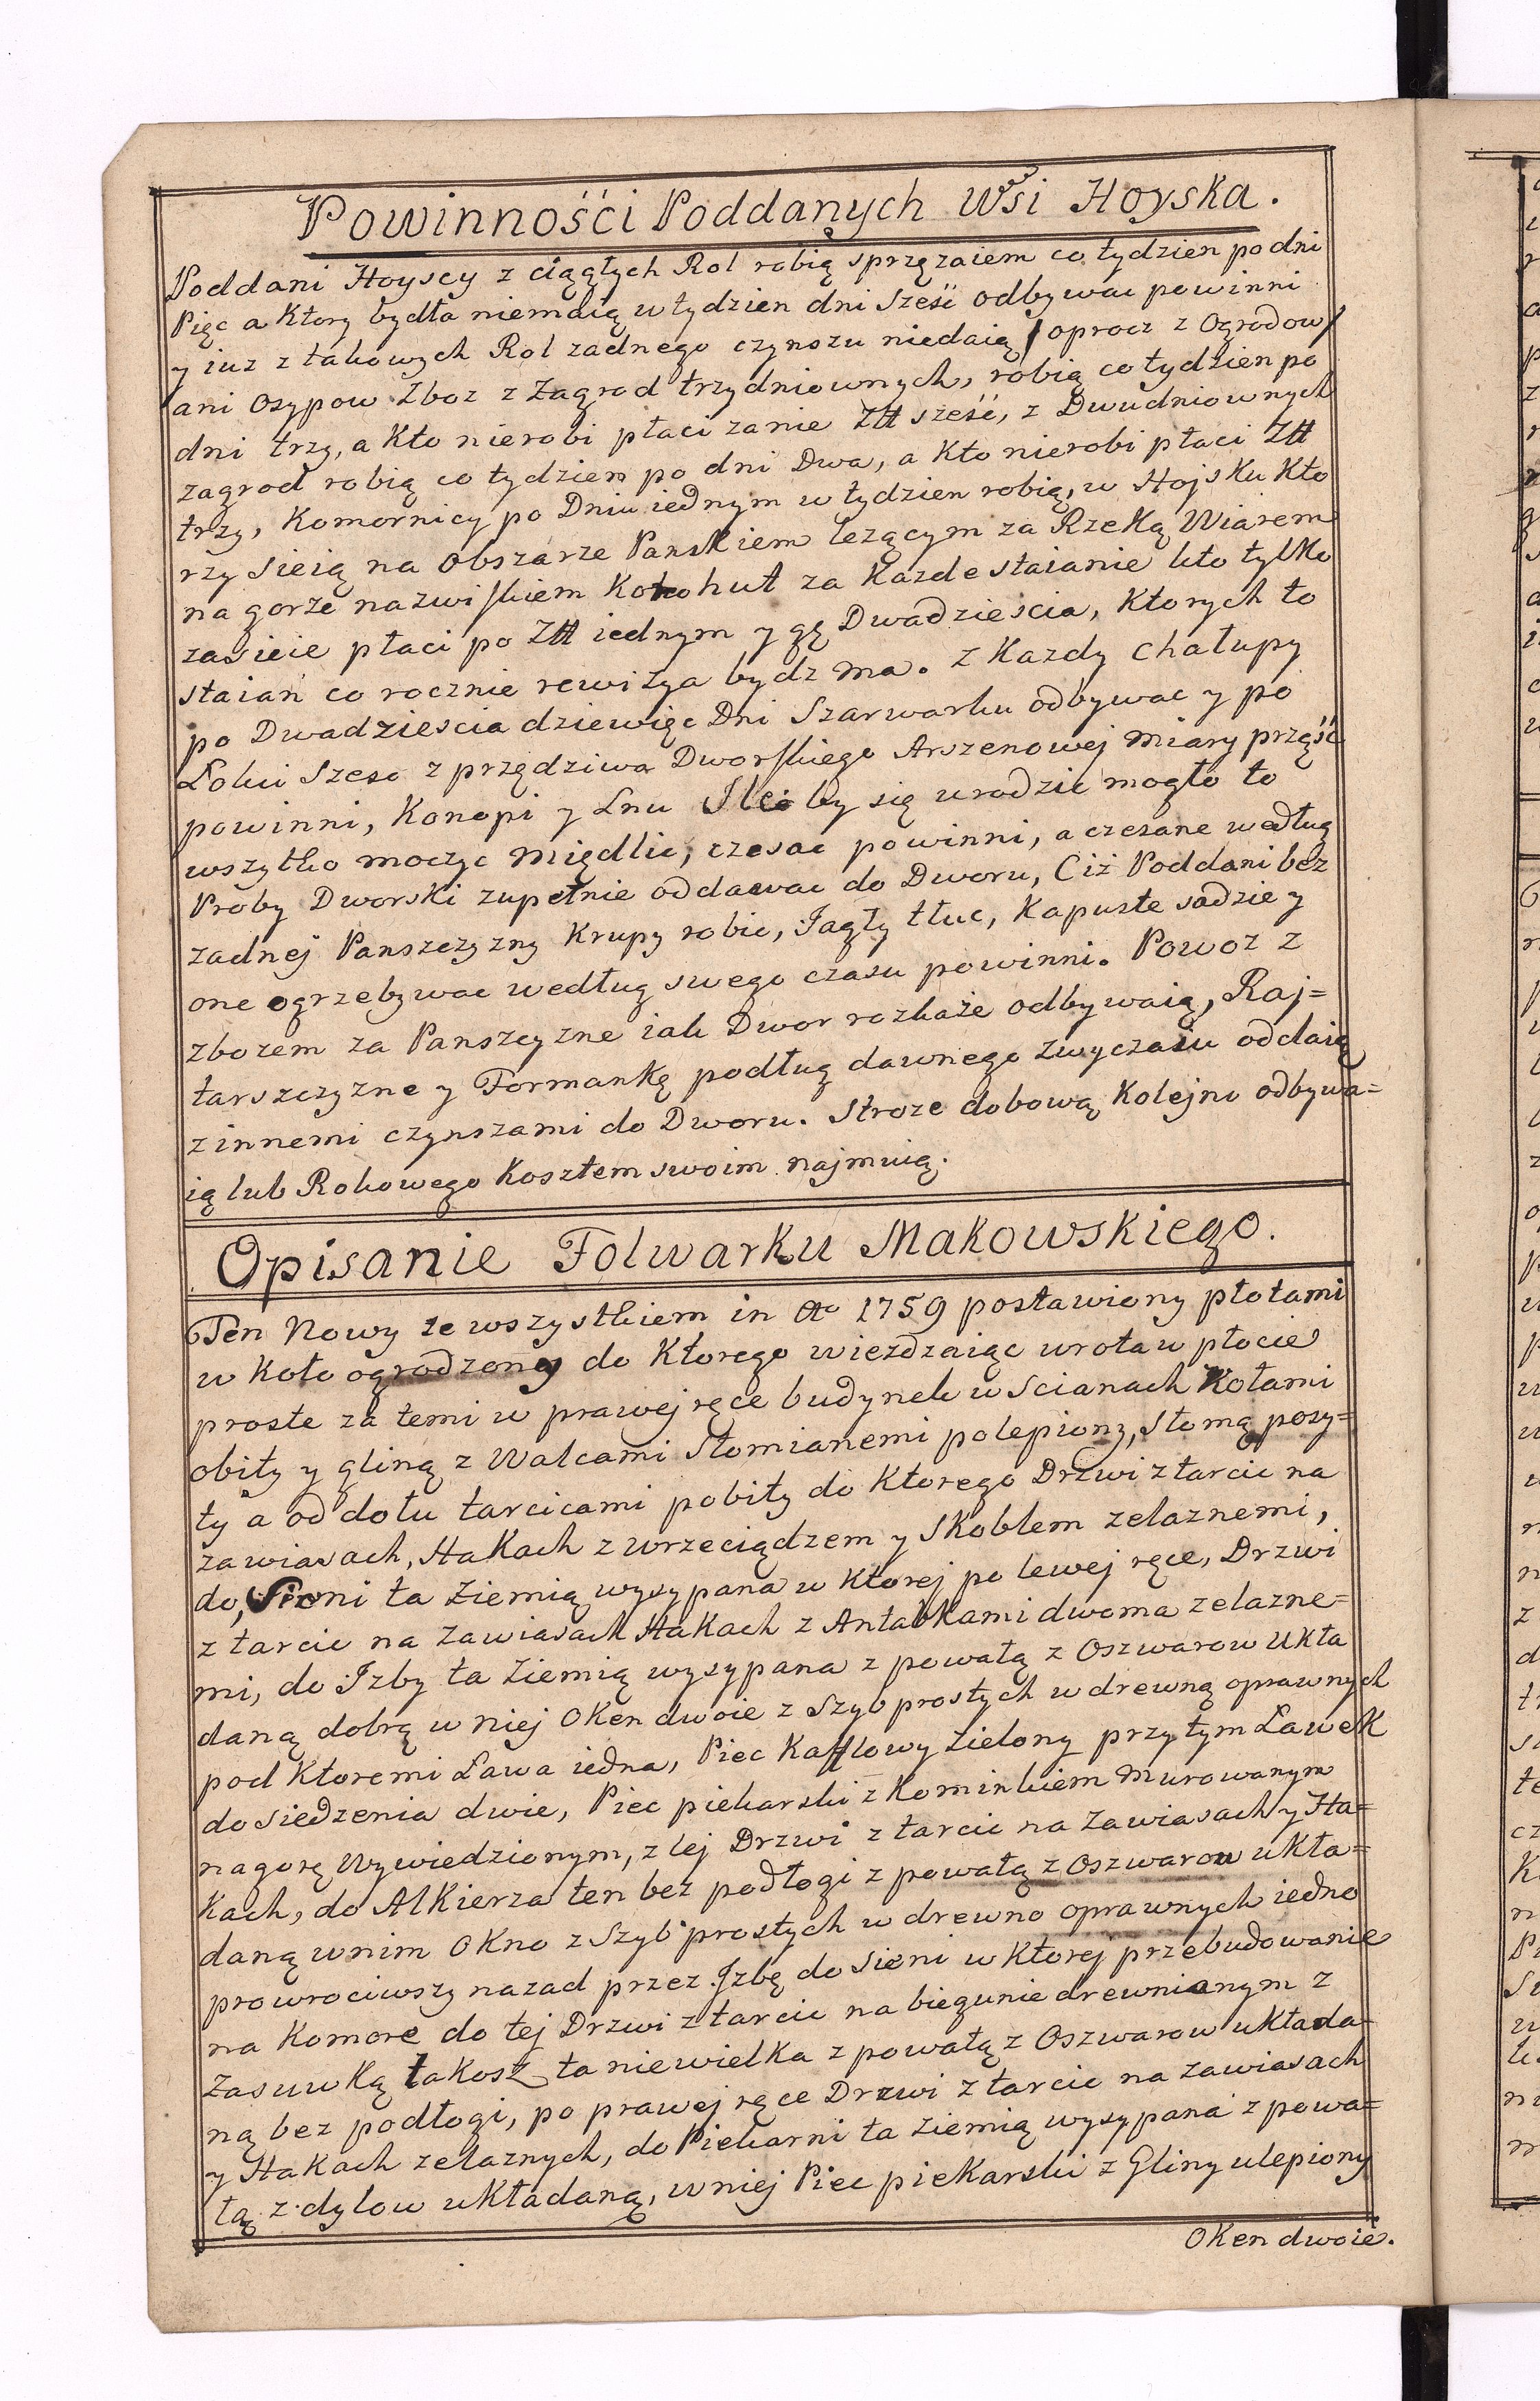 Powinnośći Poddanych Wsi Hoyska.
Poddani Hoyscy z ciągłych Rol robią sprzęzaiem co tydzien po dni
Pięc a Ktory bydła niemaią w tydzien dni Sześc odbywac powinni
y iuz z takowych Rol zadnego czynszu niedaią /oprocz z Ogrodow/
ani Osypow Zboz z Zagrod trzydniownych, robią co tydzien po
dni trzy, a Kto nierobi płaci zanie Złł sześć, z Dwudniownych
zagrod robią co tydzien po dni Dwa, a Kto nierobi płaci Złł
trzy, Komornicy po Dniu iednym w tydzien robią, w Hojsku Kto
rzy sieią na Obszarze Panskiem lezącym za Rzeką Wiarem
na gorze nazwiskiem Kohut za Kazde staianie kto tylko
zasieie płaci po Złł iednym y gę Dwadziescia, Ktorych to
staiań co rocznie rewizya bydz ma. z Kazdy Chałupy
po Dwadziescia dziewięc Dni Szarwarku odbywac y po
Łokci Szesc z przędziwa Dworskiego Arszenowej miary prząśc
powinni, Konopi y Lnu Ile by się urodzic mogło to
wszytko moczyc międlic, czesac powinni, a czesane według
Proby Dworski zupełnie oddawac do Dworu, Ciż Poddani bez
zadnej Panszczyzny Krupy robic, Jagły tłuc, Kapuste sadzic y
one ogrzebywac według swego czasu powinni. Powoz z
zbozem za Panszczyzne iak Dwor rozkaże odbywaią, Raj=
tarszczyzne y Formankę podług dawnego zwyczaiu oddaią
z innemi czynszami do Dworu. Stroze dobową Kolejno odbywa=
ią lub Rokowego Kosztem swoim najmuią.
Opisanie Folwarku Makowskiego.
Ten Nowy ze wszystkiem in Ao 1759 postawiony płotami
w Koło ogrodzony do Ktorego wiezdzaiąc wrota w płocie
proste za temi w prawej ręce budynek w Scianach Kołami
obity y gliną z Walcami Słomianemi polepiony, Słomą poszy=
ty a od dołu tarcicami pobity do Ktorego Drzwi z tarcic na
zawiasach, Hakach z wrzeciądzem y Skoblem zelaznemi,
do, Sieni ta Ziemią wysypana w Ktorej po lewej ręce, Drzwi
z tarcic na Zawiasach Hakach z Antabkami dwoma zelazne=
mi, do Izby ta Ziemią wysypana z powałą z Oszwarow Ukła
daną dobrą w niej Oken dwoie z Szyb prostych w drewną oprawnych
pod Ktoremi Ława iedna, Piec Kafflowy Zielony przytym Ławek
do siedzenia dwie, Piec piekarski z Kominkiem murowanym
na gorę Wywiedzionym, z tej Drzwi z tarcic na Zawiasach y Ha=
kach, do Alkierza ten bez podłogi z powałą z Oszwarow ukła=
daną w nim Okno z Szyb prostych w drewno oprawnych iedno
prowrociwszy nazad przez Izbę do Sieni w Ktorej przebudowanie
na Komore do tej Drzwi z tarcic na biegunie drewnianym z
Zasuwką takosz ta niewielka z powałą z Oszwarow układa=
ną bez podłogi, po prawej ręce Drzwi z tarcic na Zawiasach
y Hakach zelaznych, do Piekarni ta Ziemią wysypana z powa=
łą z dylow układaną, w niej Piec piekarski z Gliny ulepiony
Oken dwoie.